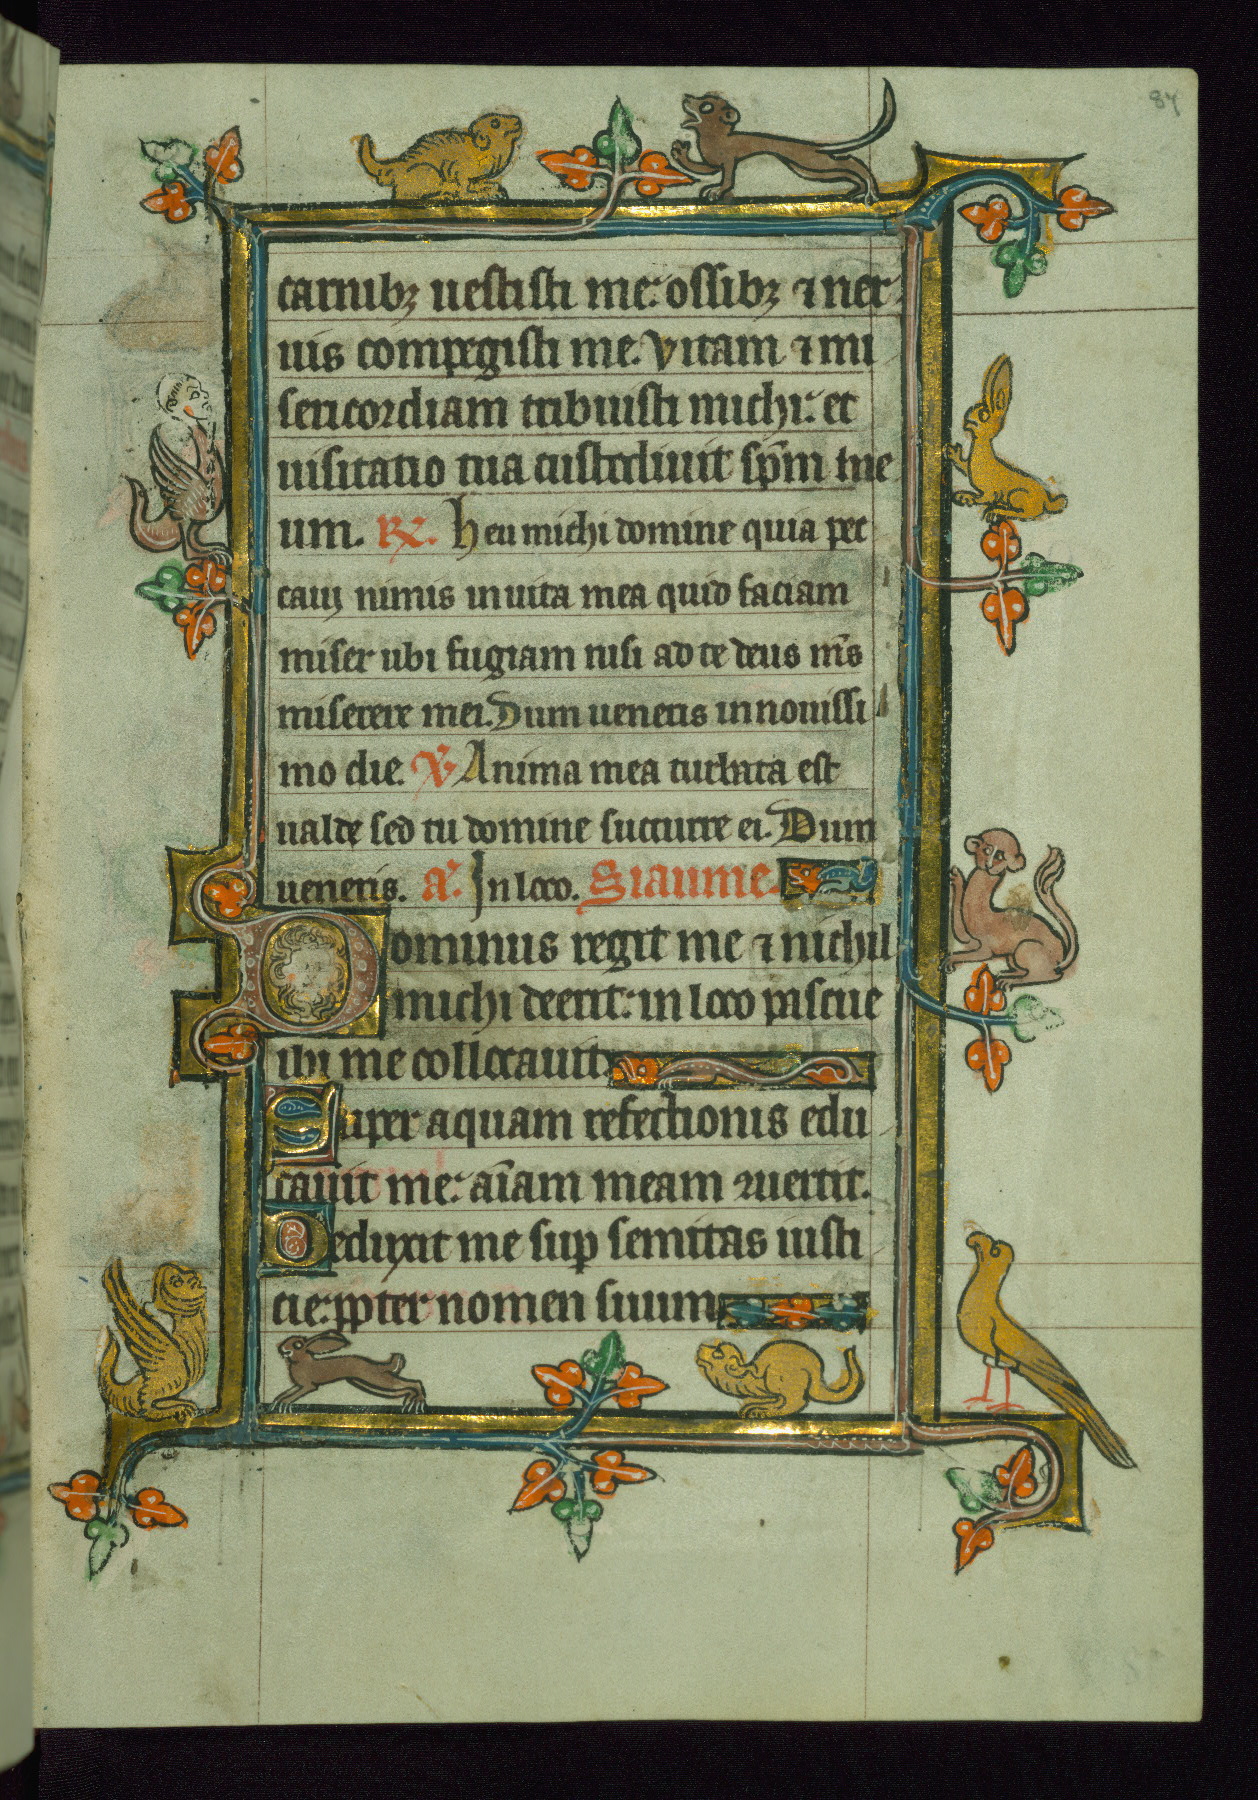 84
carnibꝫ uestisti me: ossibꝫ ⁊ ner
uis compegisti me. Vitam ⁊ mi
sericordiam tribuisti michi: et
uisitatio tua custodiuit sp̄m me
um. R̃. Heu michi domine quia pec
caui nimis in uita mea quid faciam
miser ubi fugiam nisi ad te deus m̄s
miserere mei. Dum ueneris in nouissi
mo die. Ṽ Anima mea turbata est
ualde sed tu domine succurre ei. Dum
ueneris. a. In loco. Siaume.
Dominus regit me ⁊ nichil
michi deerit: in loco pascue
ibi me collocauit.
Super aquam refectionis edu
cauit me: aīam meam ꝯuertit.
Deduxit me sup̱ semitas iusti
cie: ꝓpter nomen suum